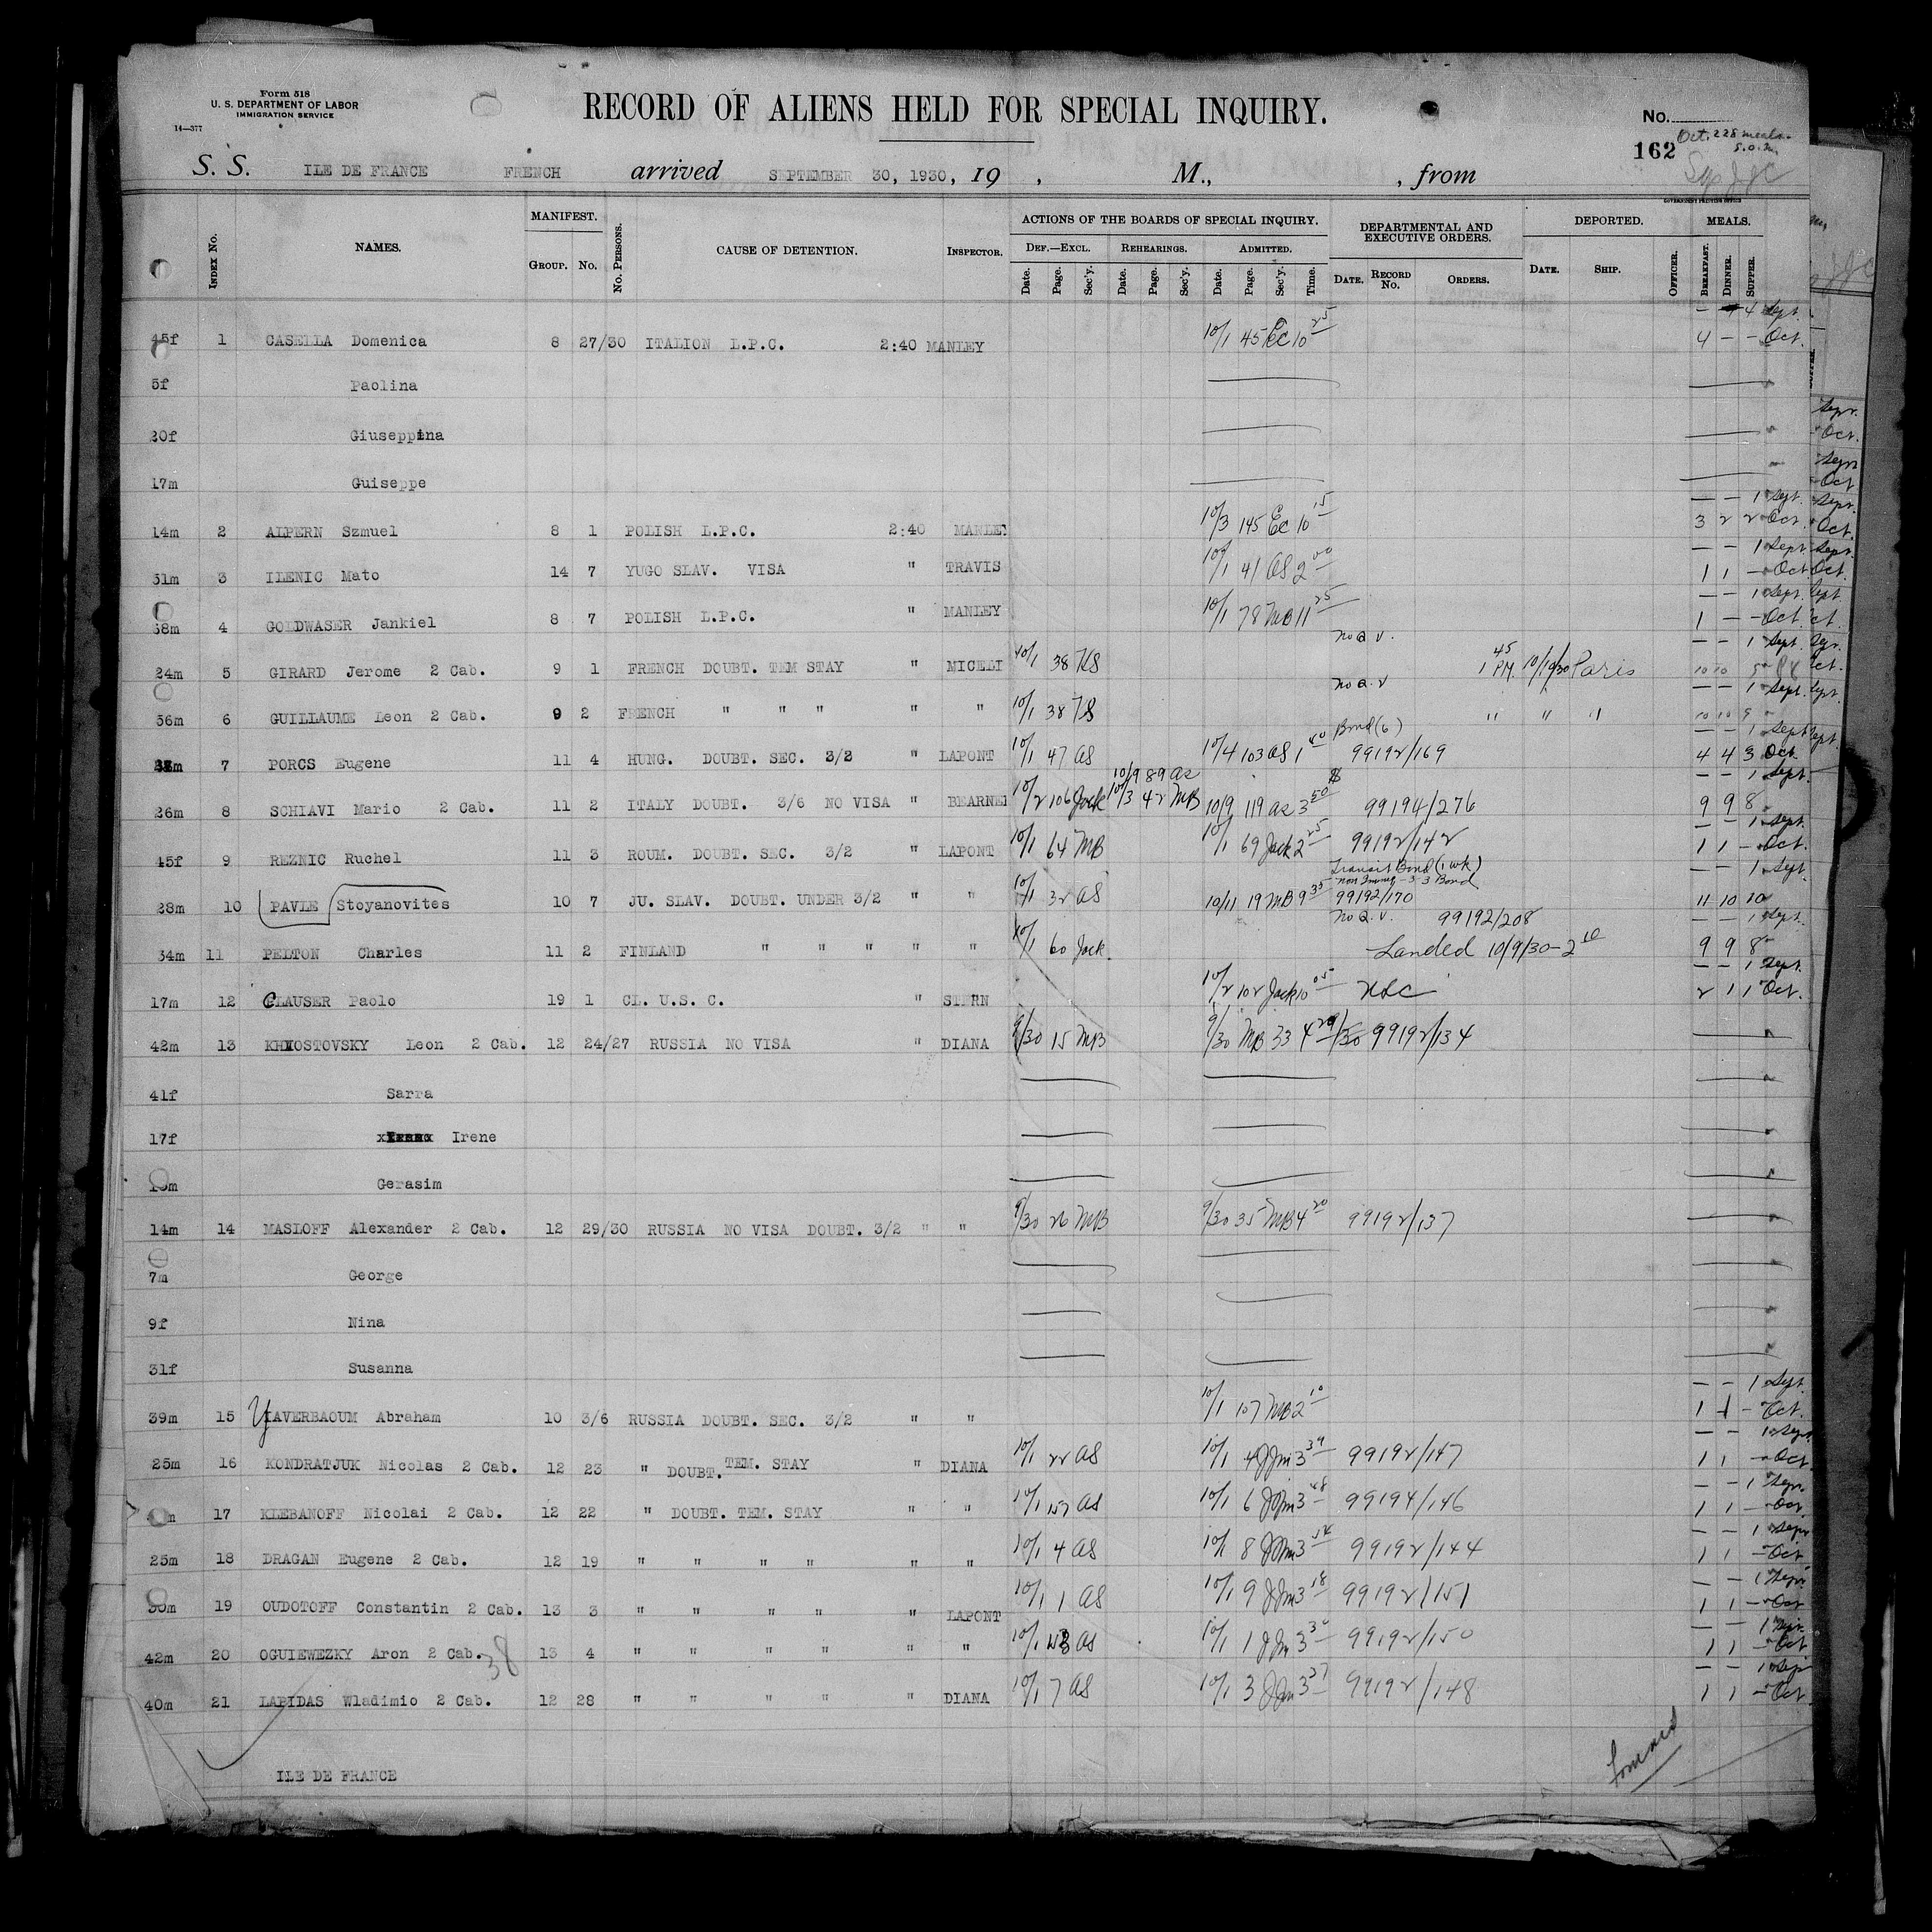 Form 518
U. S. DEPARTMENT OF LABOR
IMMIGRATION SERVICE
14—377
RECORD OF ALIENS HELD FOR SPECIAL INQUIRY.
No.
Oct. 228 meals.
162
S. S. ILE DE FRANCE FRENCH arrived SEPTEMBER 30, 1930, 19 , M., , from
GOVERNMENT PRINTING OFFICE
INDEX No. NAMES. MANIFEST. GROUP. No. No. PERSONS. CAUSE OF DETENTION. INSPECTOR. ACTIONS OF THE BOARDS OF SPECIAL INQUIRY. DEF.—EXCL. REHEARINGS. ADMITTED. Date. Page. Sec'y. Date. Page. Sec'y. Date. Page. Sec'y. Time. DEPARTMENTAL AND EXECUTIVE ORDERS. DATE. RECORD No. ORDERS. DEPORTED. DATE. SHIP. OFFICER. MEALS. BREAKFAST. DINNER. SUPPER.
45f 1 CASELLA Domenica 8 27/30 ITALION L.P.C. 2:40 MANLEY 10/1 45 EC 10 25 4 — — Oct.
5f Paolina
20f Giuseppina
17m Guiseppe
14m 2 ALPERN Szmuel 8 1 POLISH L.P.C. 2:40 MANLEY 10/3 145 EC 10 15 — — 1 Sept. 3 2 2 Oct.
31m 3 ILENIC Mato 14 7 YUGO SLAV. VISA " TRAVIS 10/1 41 AS 2 00 — — 1 Sept. 1 1 — Oct.
38m 4 GOLDWASER Jankiel 8 7 POLISH L.P.C. " MANLEY 10/1 78 MB 11 25 — — 1 Sept. 1 — — Oct.
24m 5 GIRARD Jerome 2 Cab. 9 1 FRENCH DOUBT. TEM STAY " MICELI 10/1 38 no a.v. 1 45 PM. 10/10/30 Paris — — 1 Sept. 10 10
56m 6 GUILLAUME Leon 2 Cab. 9 2 FRENCH " " " " " 10/1 38 no a.v. " " " — — 1 Sept. 10 10 9
7 PORCS Eugene 11 4 HUNG. DOUBT. SEC. 3/2 " LAPONT 10/1 47 AS 10/4 103 AS 1 40 Bond (6) 99192/169 — — 1 Sept. 4 4 3 Oct.
26m 8 SCHIAVI Mario 2 Cab. 11 2 ITALY DOUBT. 3/6 NO VISA " BEARNE 10/2 106 Jack 10/9 89 AS 10/3 42 MB 10/9 119 AS 3 50 99194/276 — — 1 Sept. 9 9 8
45f 9 REZNIC Ruchel 11 3 ROUM. DOUBT. SEC. 3/2 " LAPONT 10/1 64 MB 10/1 69 Jack 2 25 99192/142 — — 1 Sept. 1 1 — Oct.
28m 10 PAVLE Stoyanovites 10 7 JU. SLAV. DOUBT. UNDER 3/2 " " 10/1 32 AS 10/11 19 MB 9 35 Transit Bond (1 wk) 3-3 Bond 99192/170 — — 1 Sept. 11 10 10
34m 11 PELTON Charles 11 2 FINLAND " " " " " 10/1 60 Jack no a.v. 99192/208 Landed 10/9/30 - 2 10 — — 1 Sept. 9 9 8
17m 12 CLAUSER Paolo 19 1 CL. U.S. C. " STERN 10/2 102 Jack 10 05 — — 1 Sept. 2 1 1 Oct.
42m 13 KHVOSTOVSKY Leon 2 Cab. 12 24/27 RUSSIA NO VISA " DIANA 9/30 15 MB 9/30 MB 33 4 20 99192/134
41f Sarra
17f Irene
Gerasim
14m 14 MASLOFF Alexander 2 Cab. 12 29/30 RUSSIA NO VISA DOUBT. 3/2 " " 9/30 26 MB 9/30 35 MB 4 20 99192/137
7m George
9f Nina
31f Susanna
39m 15 YAVERBAOUM Abraham 10 3/6 RUSSIA DOUBT. SEC. 3/2 " " 10/1 107 MB 2 10 — — 1 Sept. 1 1 — Oct.
25m 16 KONDRATJUK Nicolas 2 Cab. 12 23 " DOUBT. TEM. STAY " DIANA 10/1 22 AS 10/1 4 JJm 3 39 99192/147 — — 1 Sept. 1 1 — Oct.
17 KLEBANOFF Nicolai 2 Cab. 12 22 " DOUBT. TEM. STAY " " 10/1 157 AS 10/1 6 JJm 3 48 99194/146 — — 1 Sept. 1 1 — Oct.
25m 18 DRAGAN Eugene 2 Cab. 12 19 " " " " " " 10/1 4 AS 10/1 8 JJm 3 54 99192/144 — — 1 Sept. 1 1 — Oct.
30m 19 OUDOTOFF Constantin 2 Cab. 13 3 " " " " " LAPONT 10/1 1 AS 10/1 9 JJm 3 18 99192/151 — — 1 Sept. 1 1 — Oct.
42m 20 OGUIEWEZKY Aron 2 Cab. 13 4 " " " " " " 10/1 AS 10/1 1 JJm 3 30 99192/150 — — 1 Sept. 1 1 — Oct.
38
40m 21 LABIDAS Wladimio 2 Cab. 12 28 " " " " " DIANA 10/1 7 AS 10/1 3 JJm 3 37 99192/148 — — 1 Sept. 1 1 — Oct.
ILE DE FRANCE